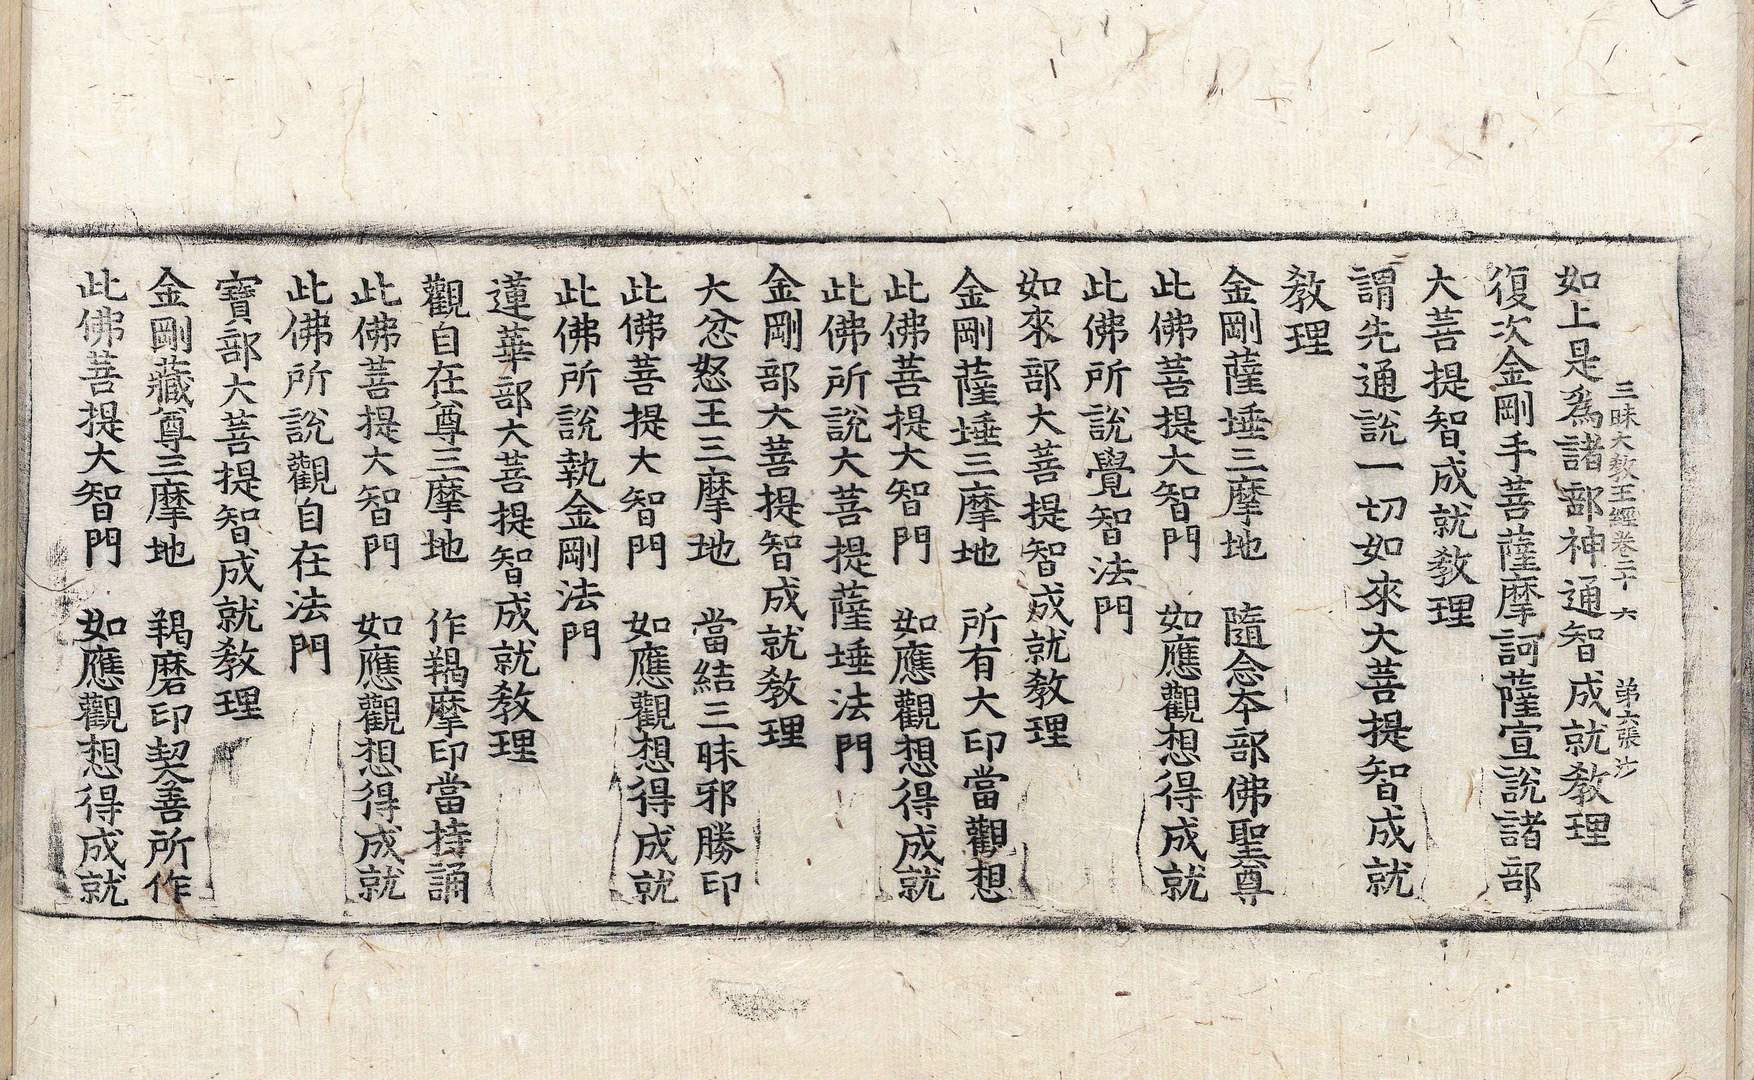 三昧大敎王經卷二十六　第六張沙
如上是爲諸部神通智成就敎理
復次金剛手菩薩摩訶薩宣說諸部
大菩提智成就敎理
謂先通說一切如來大菩提智成就
敎理
金剛薩埵三摩地　隨念本部佛聖尊
此佛菩提大智門　如應觀想得成就
此佛所說覺智法門
如來部大菩提智成就敎理
金剛薩埵三摩地　所有大印當觀想
此佛菩提大智門　如應觀想得成就
此佛所說大菩提薩埵法門
金剛部大菩提智成就敎理
大忿怒王三摩地　當結三昧邪勝印
此佛菩提大智門　如應觀想得成就
此佛所說執金剛法門
蓮華部大菩提智成就敎理
觀自在尊三摩地　作羯摩印當持誦
此佛菩提大智門　如應觀想得成就
此佛所說觀自在法門
寶部大菩提智成就敎理
金剛藏尊三摩地　羯磨印契善所作
此佛菩提大智門　如應觀想得成就